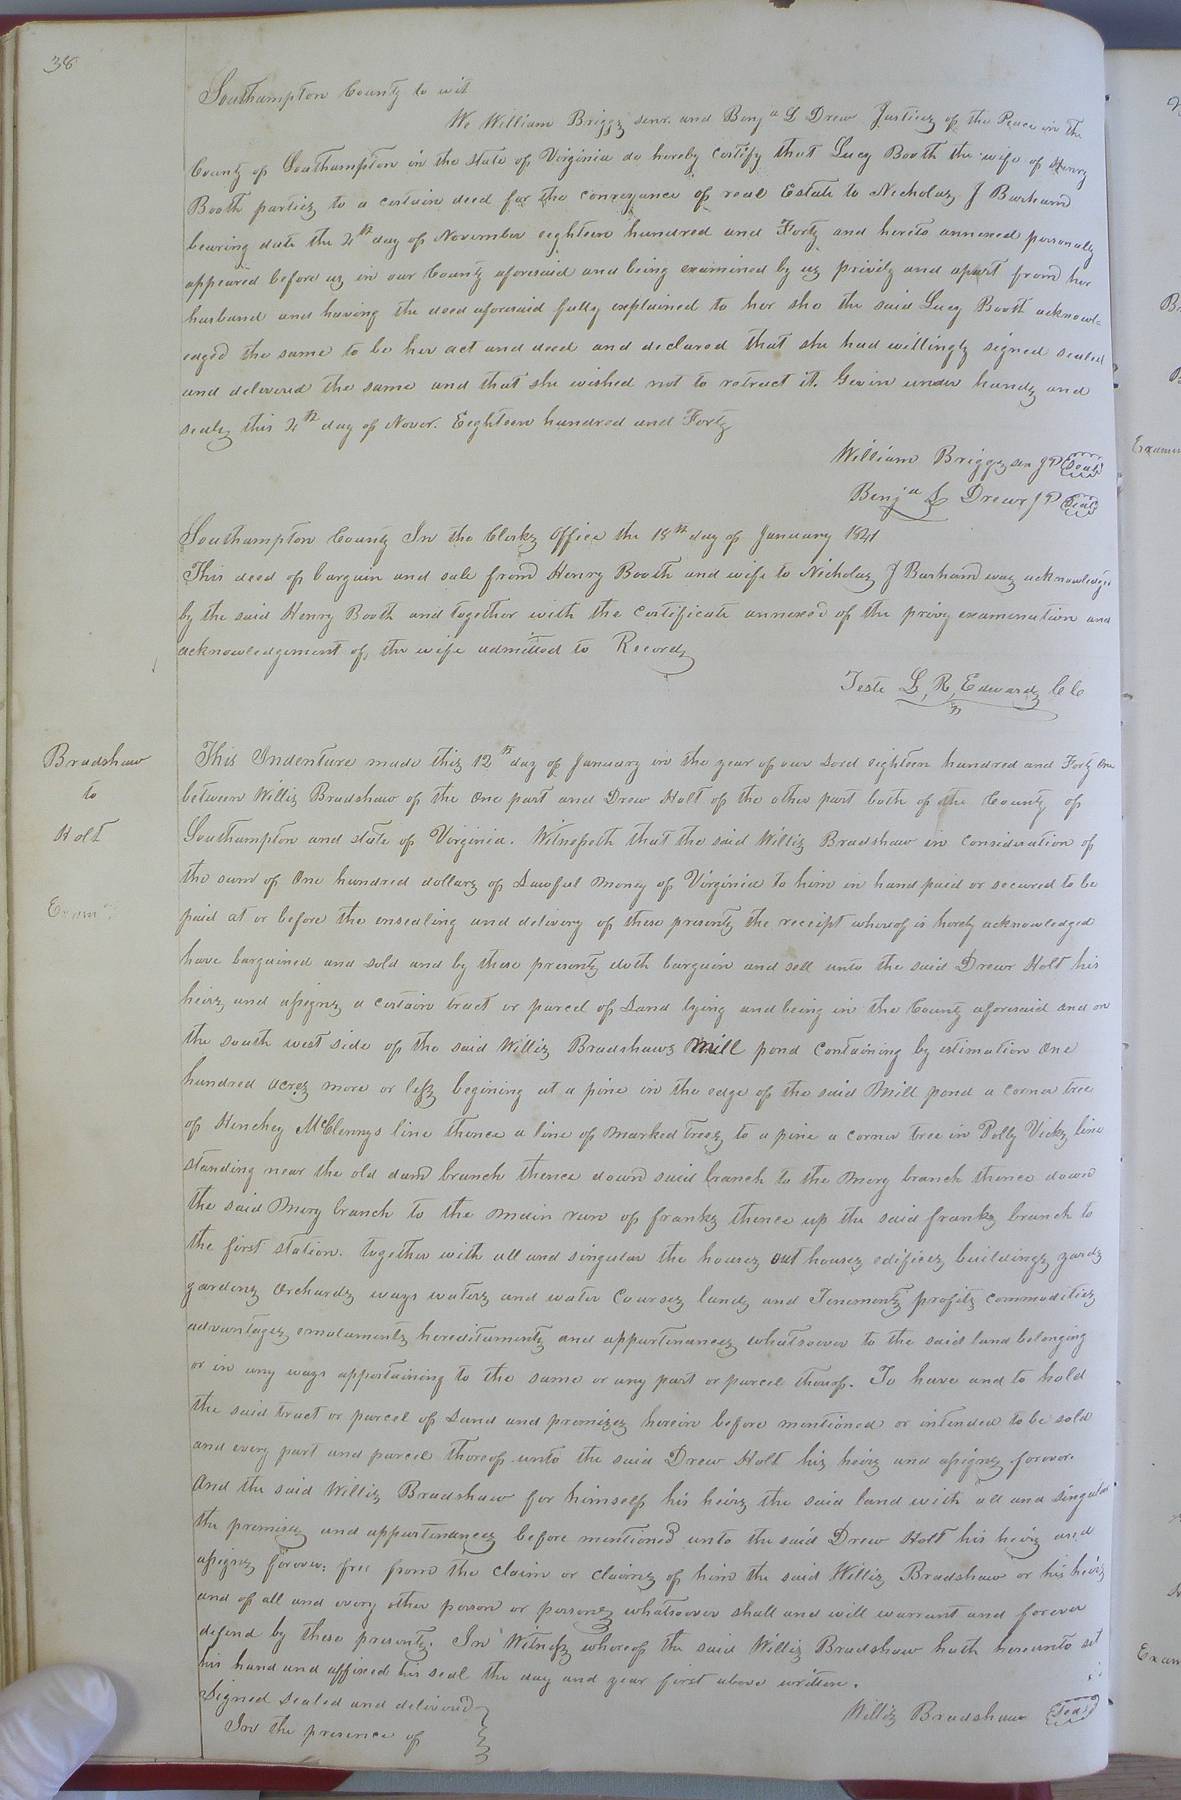 38
Southampton County to wit
We William Briggs senr. and Benja L Drew Justices of the Peace in the
County of Southampton in the state of Virginia do hereby certify that Lucy Booth the wife of Henry
Booth parties to a certain deed for the conveyance of real Estate to Nicholas J Barham
bearing date the 4th day of November eighteen hundred and Forty and hereto annexed personally
appeared before us in our County aforesaid and being examined by us privily and apart from her
husband and having the deed aforesaid fully explained to her she the said Lucy Booth acknowl=
edged the same to be her act and deed and declared that she had willingly signed sealed
and delivered the same and that she wished not to retract it. Given under hands and
seals this 4th day of Novor. Eighteen hundred and Forty
William Briggs sen JP Seal
Benja L Drew JP Seal
Southampton County In the Clerks Office the 18th day of January 1841
This deed of bargain and sale from Henry Booth and wife to Nicholas J Barham was acknowledged
by the said Henry Booth and together with the certificate annexed of the privy examination and
acknowledgement of the wife admitted to Record
Teste L, R, Edwards CC
Bradshaw
to
Holt
Examd
This Indenture made this 12th day of January in the year of our Lord eighteen hundred and Forty One
between Willis Bradshaw of the One part and Drew Holt of the other part both of the County of
Southampton and state of Virginia. Witnesseth that the said Willis Bradshaw in consideration of
the sum of One hundred dollars of Lawful money of Virginia to him in hand paid or secured to be
paid at or before the ensealing and delivery of these presents the receipt whereof is hereby acknowledged
have bargained and sold and by these presents doth bargain and sell unto the said Drew Holt his
heirs and assigns a certain tract or parcel of Land lying and being in the County aforesaid and on
the south west side of the said Willis Bradshaws Mill pond containing by estimation One
hundred acres more or less begining at a pine in the edge of the said Mill pond a corner tree
of Henchey McClennys line thence a line of marked trees to a pine a corner tree in Polly Vicks line
standing near the old dam branch thence down said branch to the Mery branch thence down
the said Mery branch to the main run of franks thence up the said franks branch to
the first station. together with all and singular the houses out houses edifices buildings yards
gardens Orchards ways waters and water Courses lands and Tenements profits commodities
advantages emoluments hereditaments and appurtenances whatsoever to the said land belonging
or in any ways appertaining to the same or any part or parcel thereof. To have and to hold
the said tract or parcel of Land and premises herein before mentioned or intended to be sold
and every part and parcel thereof unto the said Drew Holt his heirs and assigns forever.
And the said Willis Bradshaw for himself his heirs the said land with all and singular
the premises and appurtenances before mentioned unto the said Drew Holt his heirs and
assigns forever: free from the claim or claims of him the said Willis Bradshaw or his heirs
and of all and every other person or persons whatsoever shall and will warrant and forever
defend by these presents. In Witness whereof the said Willis Bradshaw hath hereunto set
his hand and affixed his seal the day and year first above written.
Signed sealed and delivered
In the presence of
Willis Bradshaw Seal
Exam